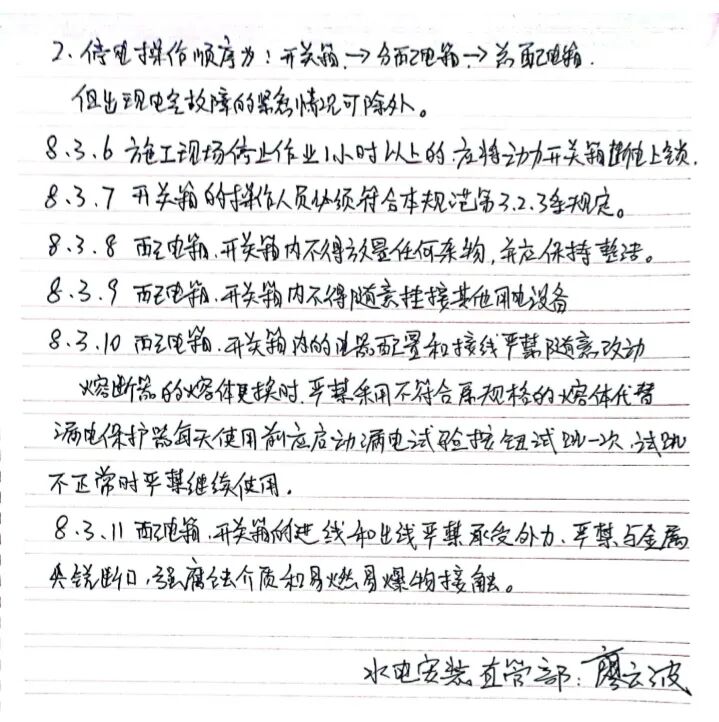 2、停电操作顺序为：开关箱→分配电箱→总配电箱.
但出现电气故障的紧急情况可除外。
8.3.6 施工现场停止作业1小时以上的.应将动力开关箱断电上锁.
8.3.7 开关箱的操作人员必须符合本规范第3.2.3条规定。
8.3.8 配电箱.开关箱内不得放置任何杂物,并应保持整洁。
8.3.9 配电箱.开关箱内不得随意挂接其他用电设备
8.3.10 配电箱.开关箱内的电器配置和接线严禁随意改动
熔断器的熔体更换时.严禁采用不符合原规格的熔体代替
漏电保护器每天使用前应启动漏电试验按钮试跳一次.试跳
不正常时严禁继续使用.
8.3.11 配电箱.开关箱的进线和出线严禁承受外力.严禁与金属
尖锐断口.强腐蚀介质和易燃易爆物接触。
水电安装直管部:廖云波